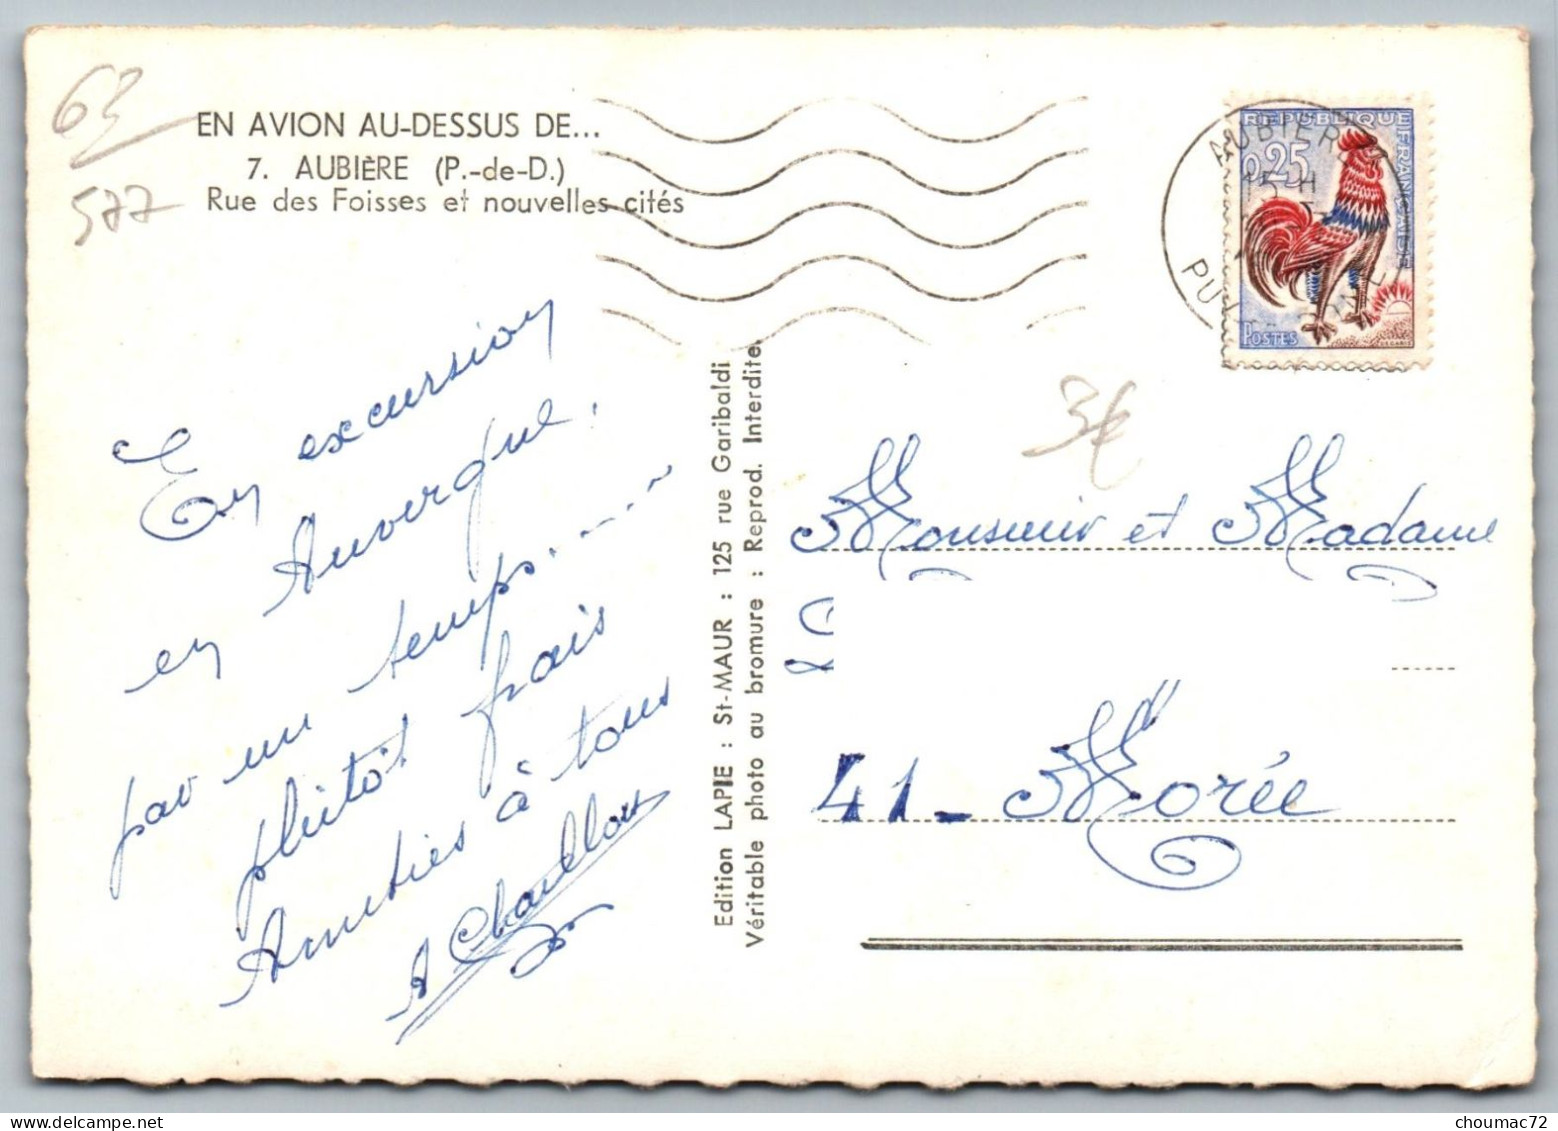 63
577
EN AVION AU-DESSUS DE...
7. AUBIÈRE (P.-de-D.)
Rue des Foisses et nouvelles cités
En excursion
en Auvergne.
par un temps.....
plutôt frais
Amitiés à tous
A Chaillou
Edition LAPIE : St-MAUR : 125 rue Garibaldi
Véritable photo au bromure : Reprod. Interdite
AUBIERE
15 H
PUY DE DOME
REPUBLIQUE FRANÇAISE
0,25
POSTES
DECARIS
3€
Monsieur et Madame
41 - Morée
choumac72